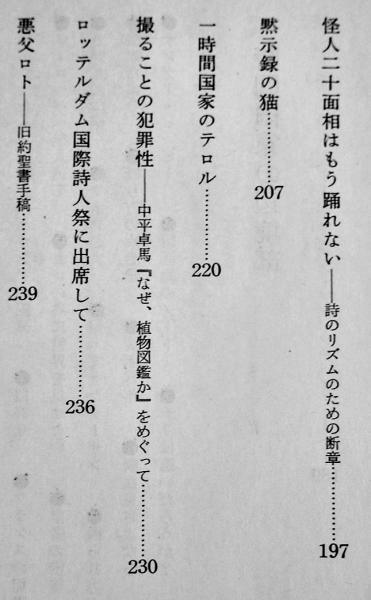 怪人二十面相はもう踊れない――詩のリズムのための断章……………197
黙示録の猫……………207
一時間国家のテロル……………220
撮ることの犯罪性――中平卓馬『なぜ、植物図鑑か』をめぐって……………230
ロッテルダム国際詩人祭に出席して……………236
悪父ロト――旧約聖書手稿……………239